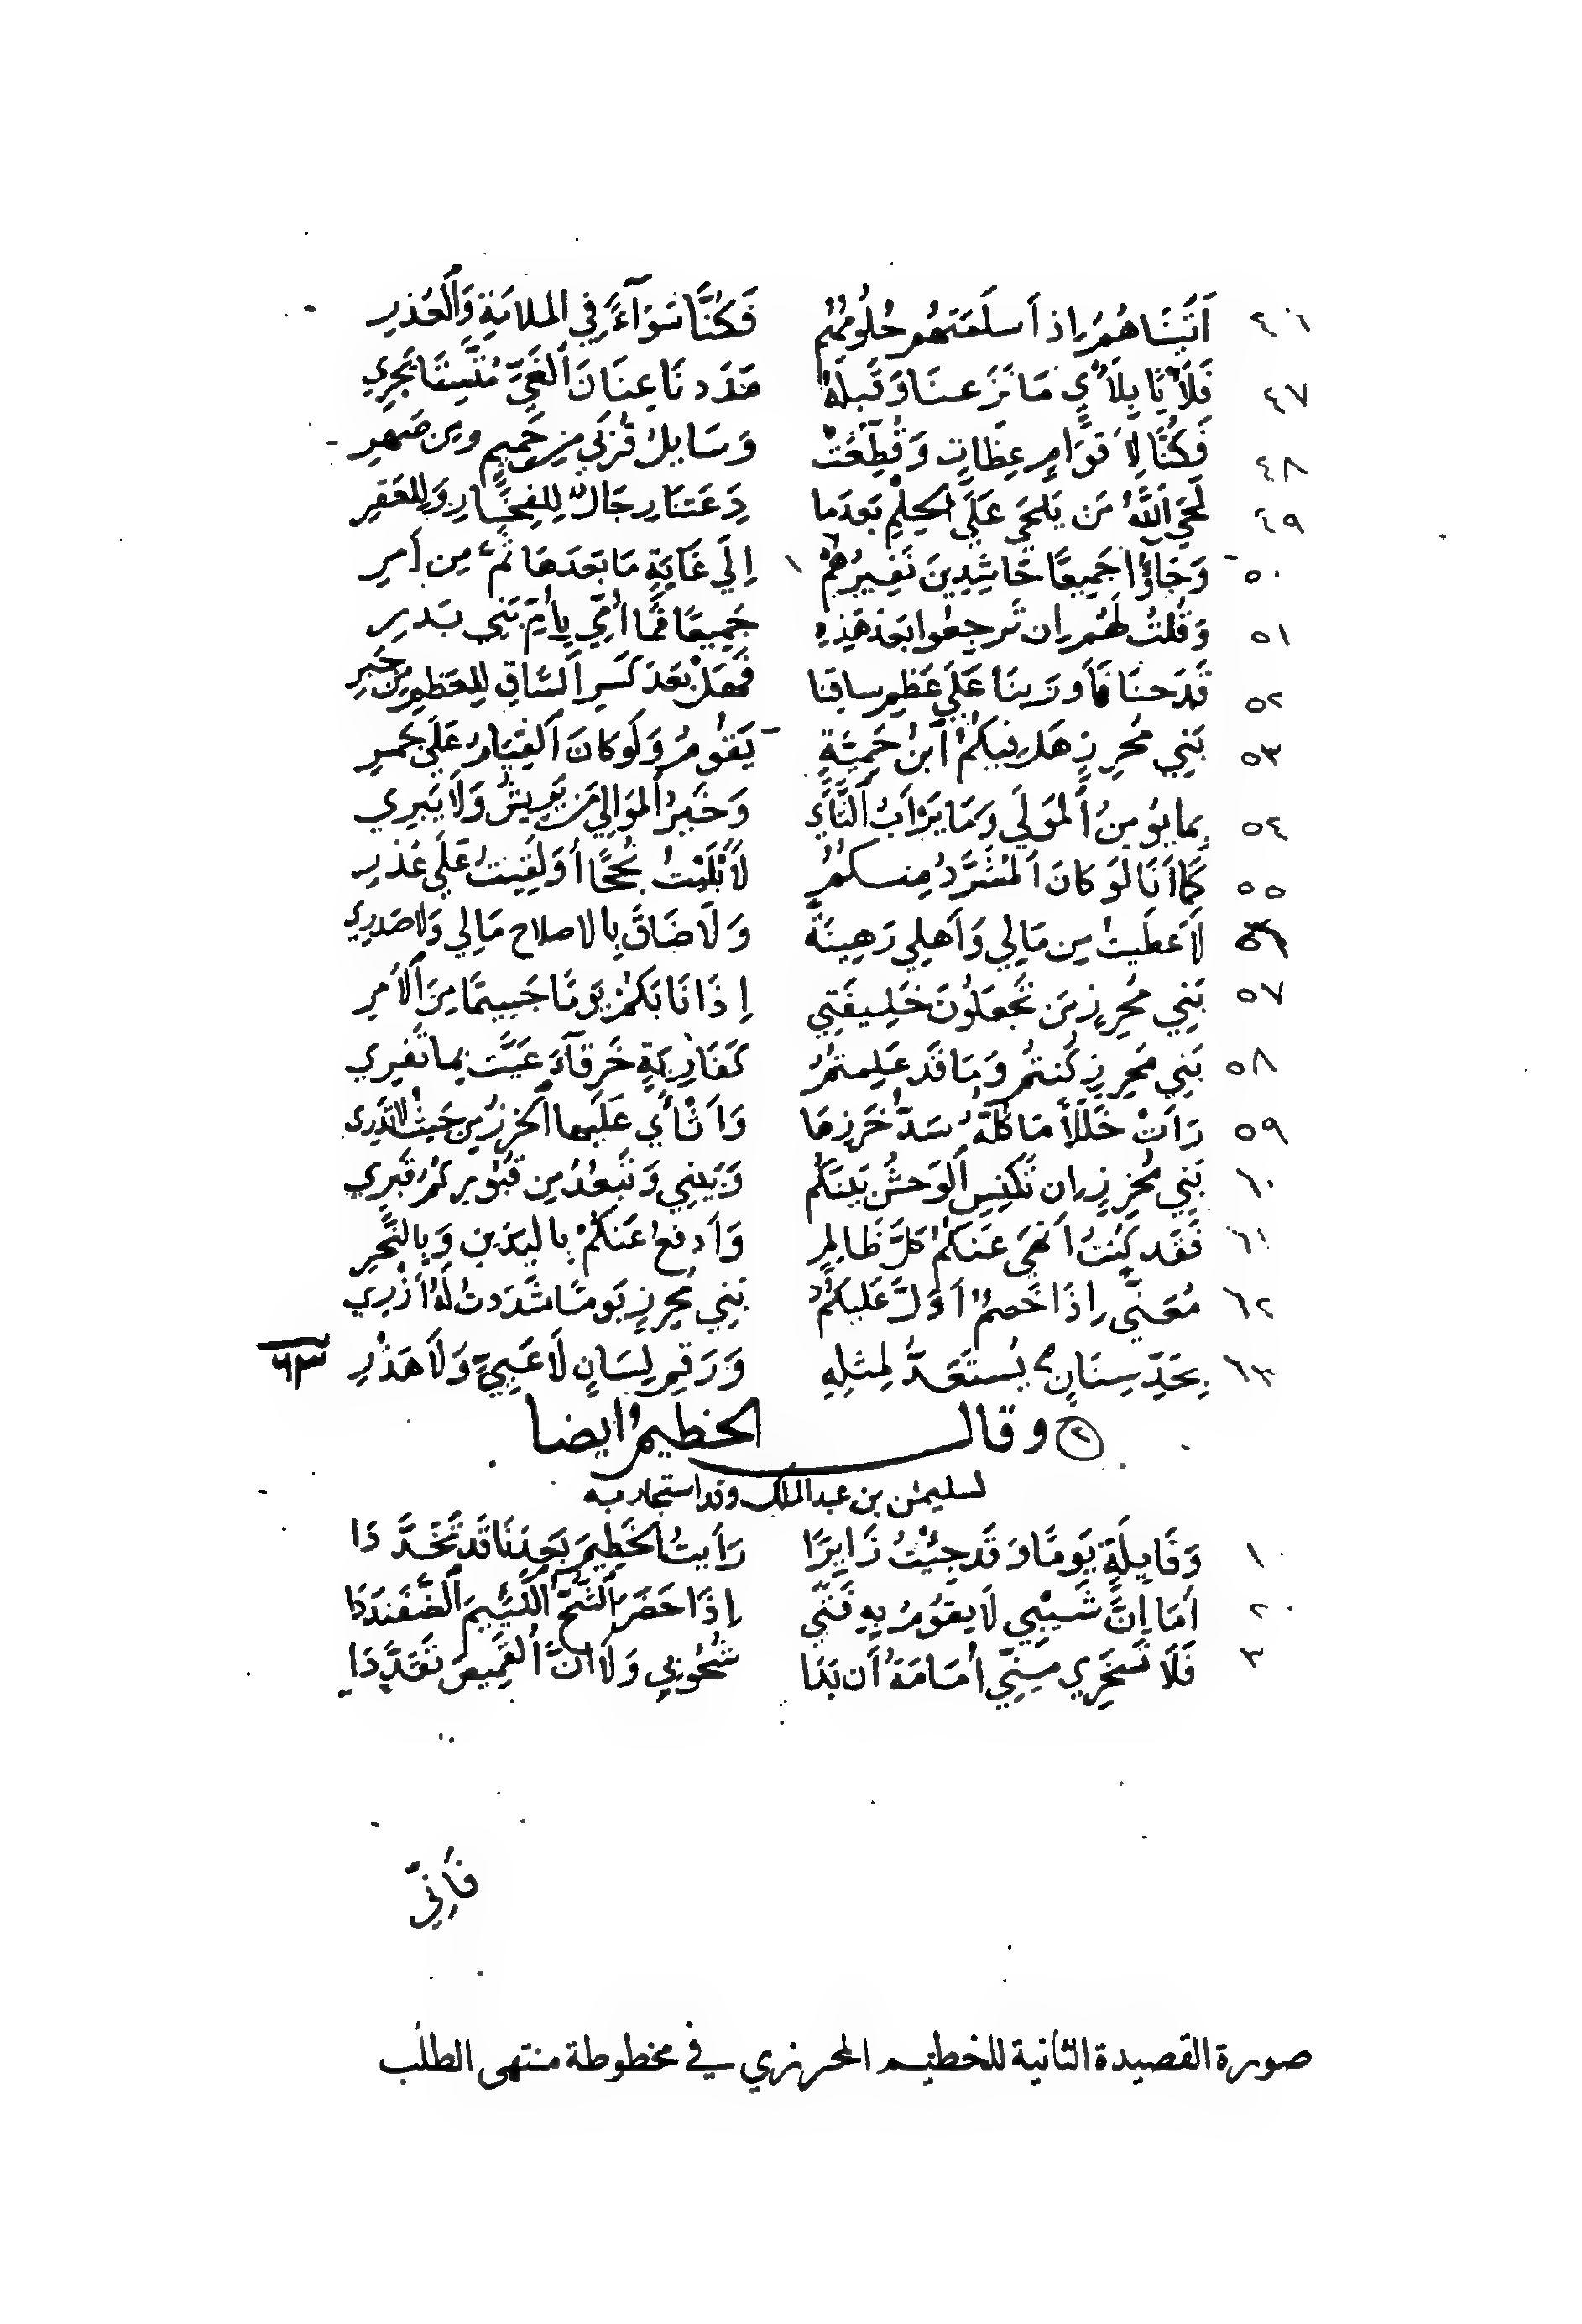 ٤٦ أَتَيْنَاهُمُ إِذ أَسلَمَتهُم حُلُومُهُم فَكُنَّا سَوَآءً فِي المَلامَةِ وَالْعُذرِ
٤٧ فَلَأْيًا بِلَأْيٍ مَا نَزَعنَا وَقَبلَهُ مَدَدنَا عِنَانَ الْغَيِّ مُتَّسِقًا يَجرِي
٤٨ فَكُنَّا لِأَقوَامٍ عِظَاتٍ وَقُطِّعَتْ وَسَايِلُ قُربَى مِن حَمِيمٍ وَمِن صِهرِ
٤٩ لَحَى اللَّهُ مَن يَلحَى عَلَى الحِلمِ بَعدَما دَعَتنَا رِجَالٌ لِلفِخَارِ وَلِلعَقرِ
٥٠ وَجَاؤُا جَمِيعًا حَاشِدِينَ نَفِيرُهُمْ إِلَى غَايَةٍ مَا بَعدَهَا ثَمَّ مِن أَمرِ
٥١ وَقُلتُ لَهُم إِن تَرجِعُوا بَعدَ هَذِهِ جَمِيعًا فَمَا أُمِّي بِأُمِّ بَنِي بَدرِ
٥٢ قَدَحنَا فَأَورَينَا عَلَى عَظمِ ساقِنا فَهَل بَعدَ كَسرِ السَّاقِ لِلعَظمِ مِن جَبرِ
٥٣ بَنِي مُحرِزٍ هَل فِيكُمُ ابنُ حَمِيَّةٍ يَقُومُ وَلَو كَانَ القِيَامُ عَلَى جَمرِ
٥٤ بِما يُومِنُ المَولَى وَمَا يَرْأَبُ الثَّأَى وَخَيرُ المَوَالِي مَن يَرِيشُ وَلَا يَبرِي
٥٥ كَمَا أَنَا لَو كَانَ المُشَرَّدُ مِنكُمُ لَأَبْلَيتُ نُجحًا أَو لَقِيتُ عَلَى عُذرِ
٥٦ لَأَعطَيتُ مِن مَالِي وَأَهلِي رَهِينَةً وَلَا ضَاقَ بِالاصلاحِ مَالِي وَلا صَدرِي
٥٧ بَنِي مُحرِزٍ مَن تَجعَلُونَ خَلِيفَتِي إِذَا نَابَكُمْ يَومًا جَسِيمًا مِنَ الأَمرِ
٥٨ بَنِي مُحرِزٍ كُنتُم وَمَا قَد عَلِمتُمُ كَفَارِيَةٍ خَرقَآءَ عَيَّت بِما تَفرِي
٥٩ رَأَتْ خَلَلًا مَا كُلُّهُ سَدَّ خَرزُها وَأَثْأَى عَلَيها الخَرزُ مِن حَيثُ لا تَدرِي
٦٠ بَنِي مُحرِزٍ إِن تَكنِسِ الوَحشُ بَينَكُم وَبَينِي وَتَبعُدْ مِن قُبُورِكُمُ قَبرِي
٦١ فَقَد كُنتُ أَنهَى عَنكُمُ كُلَّ ظَالِمٍ وَأَدفَعُ عَنكُمْ بِاليَدَينِ وَبِالنَّحرِ
٦٢ مُعَنًّى إِذَا خَصمٌ أَدَلَّ عَلَيكُمُ بَنِي مُحرِزٍ يَومًا شَدَدتُ لَهُ أَزْرِي
٦٣ بِحَدِّ سِنَانٍ يُستَعَدُّ لِمِثلِهِ وَرَقمِ لِسَانٍ لَا عَيِيٍّ وَلَا هَذْرِ ٦٣
٢ وقال الخطيم ايضا
لسليمٰن بن عبدالملك وقد استجار به
١ وَقَايِلَةٍ يَومًا وَقَد جِئْتُ زَايِرًا رَأَيتُ الخَطِيمَ بَعدَنَا قَد تَخَدَّدَا
٢ أَمَا إِنَّ شَيْبِي لَا يَقُومُ بِهِ فَتًى إِذَا حَضَرَ الشُّحُّ اللَّئِيمَ الضَّفَندَدَا
٣ فَلَا تَسخَرِي مِنِّي أُمَامَةُ أَن بَدَا شُحُوبِي وَلَا أَنَّ القَمِيصَ تَقَدَّدَا
فَإِنِّي
صورة القصيدة الثانية للخطيم المحرزي في مخطوطة منتهى الطلب